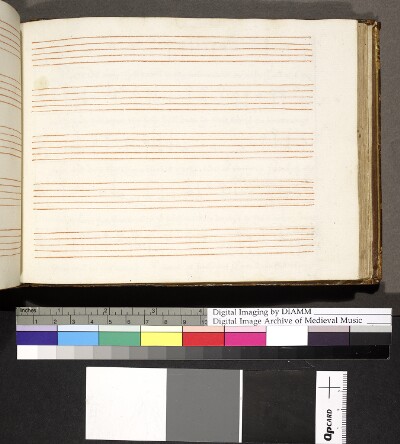 inches 1 2 3
1 2 3 4 5 6 7 8 9 10
Digital Imaging by DIAMM
Digital Image Archive of Medieval Music
QPCARD